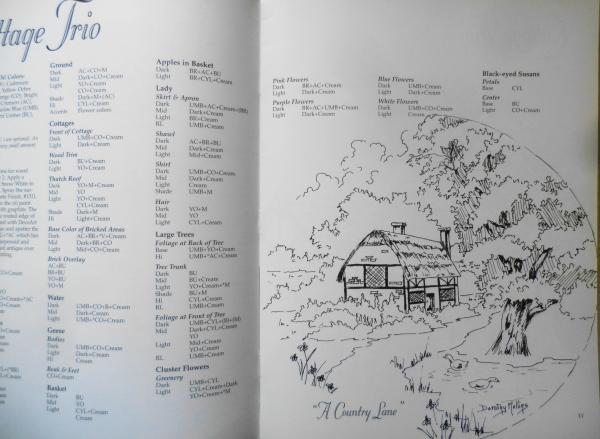 tage Trio
Oil Colors:
Cadmium
Yellow Ochre
Bright
Crimson (AC),
Blue (UMB),
Burnt Umber (BU),
Ground
Dark AC+CO+M
Mid Dark+CO+Cream
Light YO+Cream
CO+Cream
Shade Dark+M+(AC)
Hi CYL+Cream
Accents Flower colors
Cottages
Front of Cottage
Dark UMB+CO+Cream
Light Dark+Cream
Wood Trim
Dark BU
Light BU+Cream
Thatch Roof
Dark YO+M+Cream
Mid YO
Light YO+Cream
CYL+Cream
Shade Dark+M
Hi Light+Cream
Base Color of Bricked Areas
Dark AC+BR+*V+Cream
Mid Dark+BR+CO
Light Mid+CO+Cream
Brick Overlay
AC+BU
BR+BU
YO+BU
YO+M
Water
Dark UMB+CO+B+Cream
Mid Dark+Cream
Light UMB+*CO+Cream
Geese
Bodies
Dark UMB+CO+Cream
Light Dark+Cream
Hi Cream
Beak & Feet
CO+Cream
Basket
Dark BU
Mid YO
Light CYL+Cream
Cream
Apples in Basket
Dark BR+AC+BU
Light BR+CYL+Cream
Lady
Skirt & Apron
Dark UMB+AC+Cream+(BR)
Mid Dark+Cream
Light BR+Cream
RL UMB+Cream
Shawl
Dark AC+BR+BU
Mid Dark+Cream
Light Mid+Cream
Skirt
Dark UMB+CO+Cream
Mid Dark+Cream
Light Cream
Shade UMB+M
Hair
Dark YO+M
Mid YO
Light CYL+Cream
Large Trees
Foliage at Back of Tree
Base UMB+YO+Cream
Hi UMB+*AC+Cream
Tree Trunk
Dark BU
Mid BU+Cream
Light YO+Cream+*M
Shade BU+M
Hi CYL+Cream
RL UMB+Cream
Foliage at Front of Tree
Dark UMB+CYL+(B)+(M)
Mid Dark+CYL+Cream
YO
Light Mid+Cream
YO+Cream
RL UMB+Cream
Cluster Flowers
Greenery
Dark UMB+CYL
Light CYL+Cream+Dark
YO+Cream+*M
Pink Flowers
Dark BR+AC+Cream
Light Dark+Cream
Purple Flowers
Dark BR+AC+UMB+Cream
Light Dark+Cream
Blue Flowers
Dark UMB+Cream
Light Dark+Cream
White Flowers
Dark UMB+CO+Cream
Light Cream
Black-eyed Susans
Petals
Base CYL
Center
Base BU
Light CO+Cream
"A Country Lane"
Dorothy
11